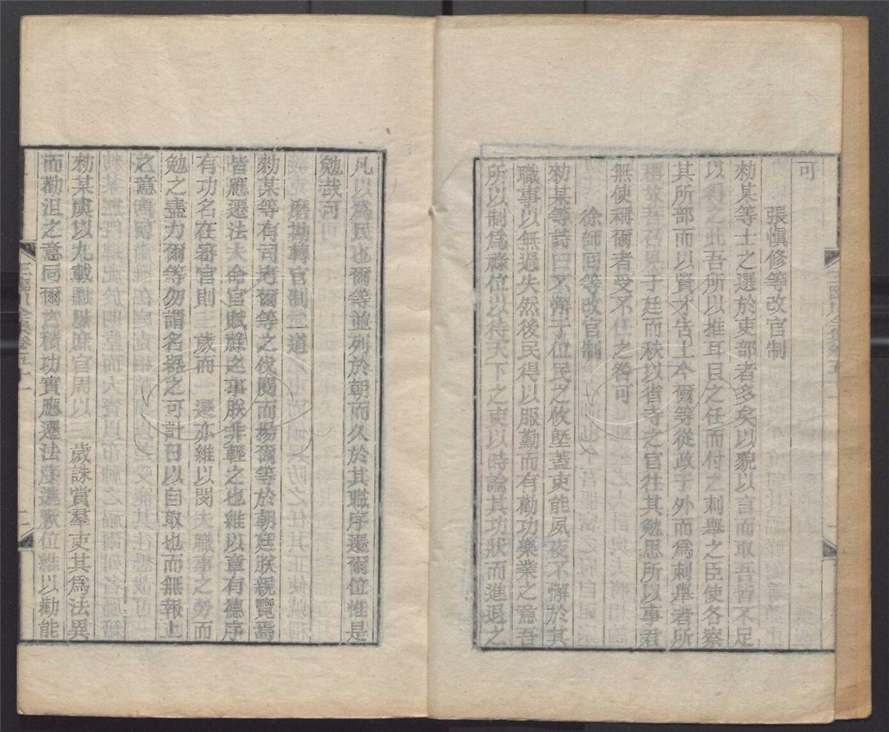 可
張慎修等改官制
勑某等士之選於吏部者多矣以貌以言而取吾皆不足
以得之此吾所以推耳目之任而付之刺舉之臣使各察
其所部而以賢才告上今爾等從政于外而為刺舉者所
稱故吾召見于廷而秩以省寺之官往其勉思所以事君
無使稱爾者受不任之咎可
徐師回等改官制
勑某等詩曰不懈于位民之攸墍蓋吏能夙夜不懈於其
職事以無過失然後民得以服勤而有勸功樂業之意吾
所以制為祿位以待天下之吏以時論其功狀而進退之
凡以為民也爾等並列於朝而久於其職序遷爾位惟是
勉哉可
磨勘轉官制二道
勑某等有司考爾等之伐閱而揚爾等於朝廷朕親覽焉
皆應遷法夫命官賦祿之事朕非輕之也維以章有德序
有功名在審官則三歲而一遷亦維以閔夫職事之勞而
勉之盡力爾等勿謂名器之可計日以自取也而無報上
之意
勑某虞以九載黜陟庶官周以三歲誅賞羣吏其為法異
而勸沮之意同爾宮積功實應遷法序進厥位維以勸能